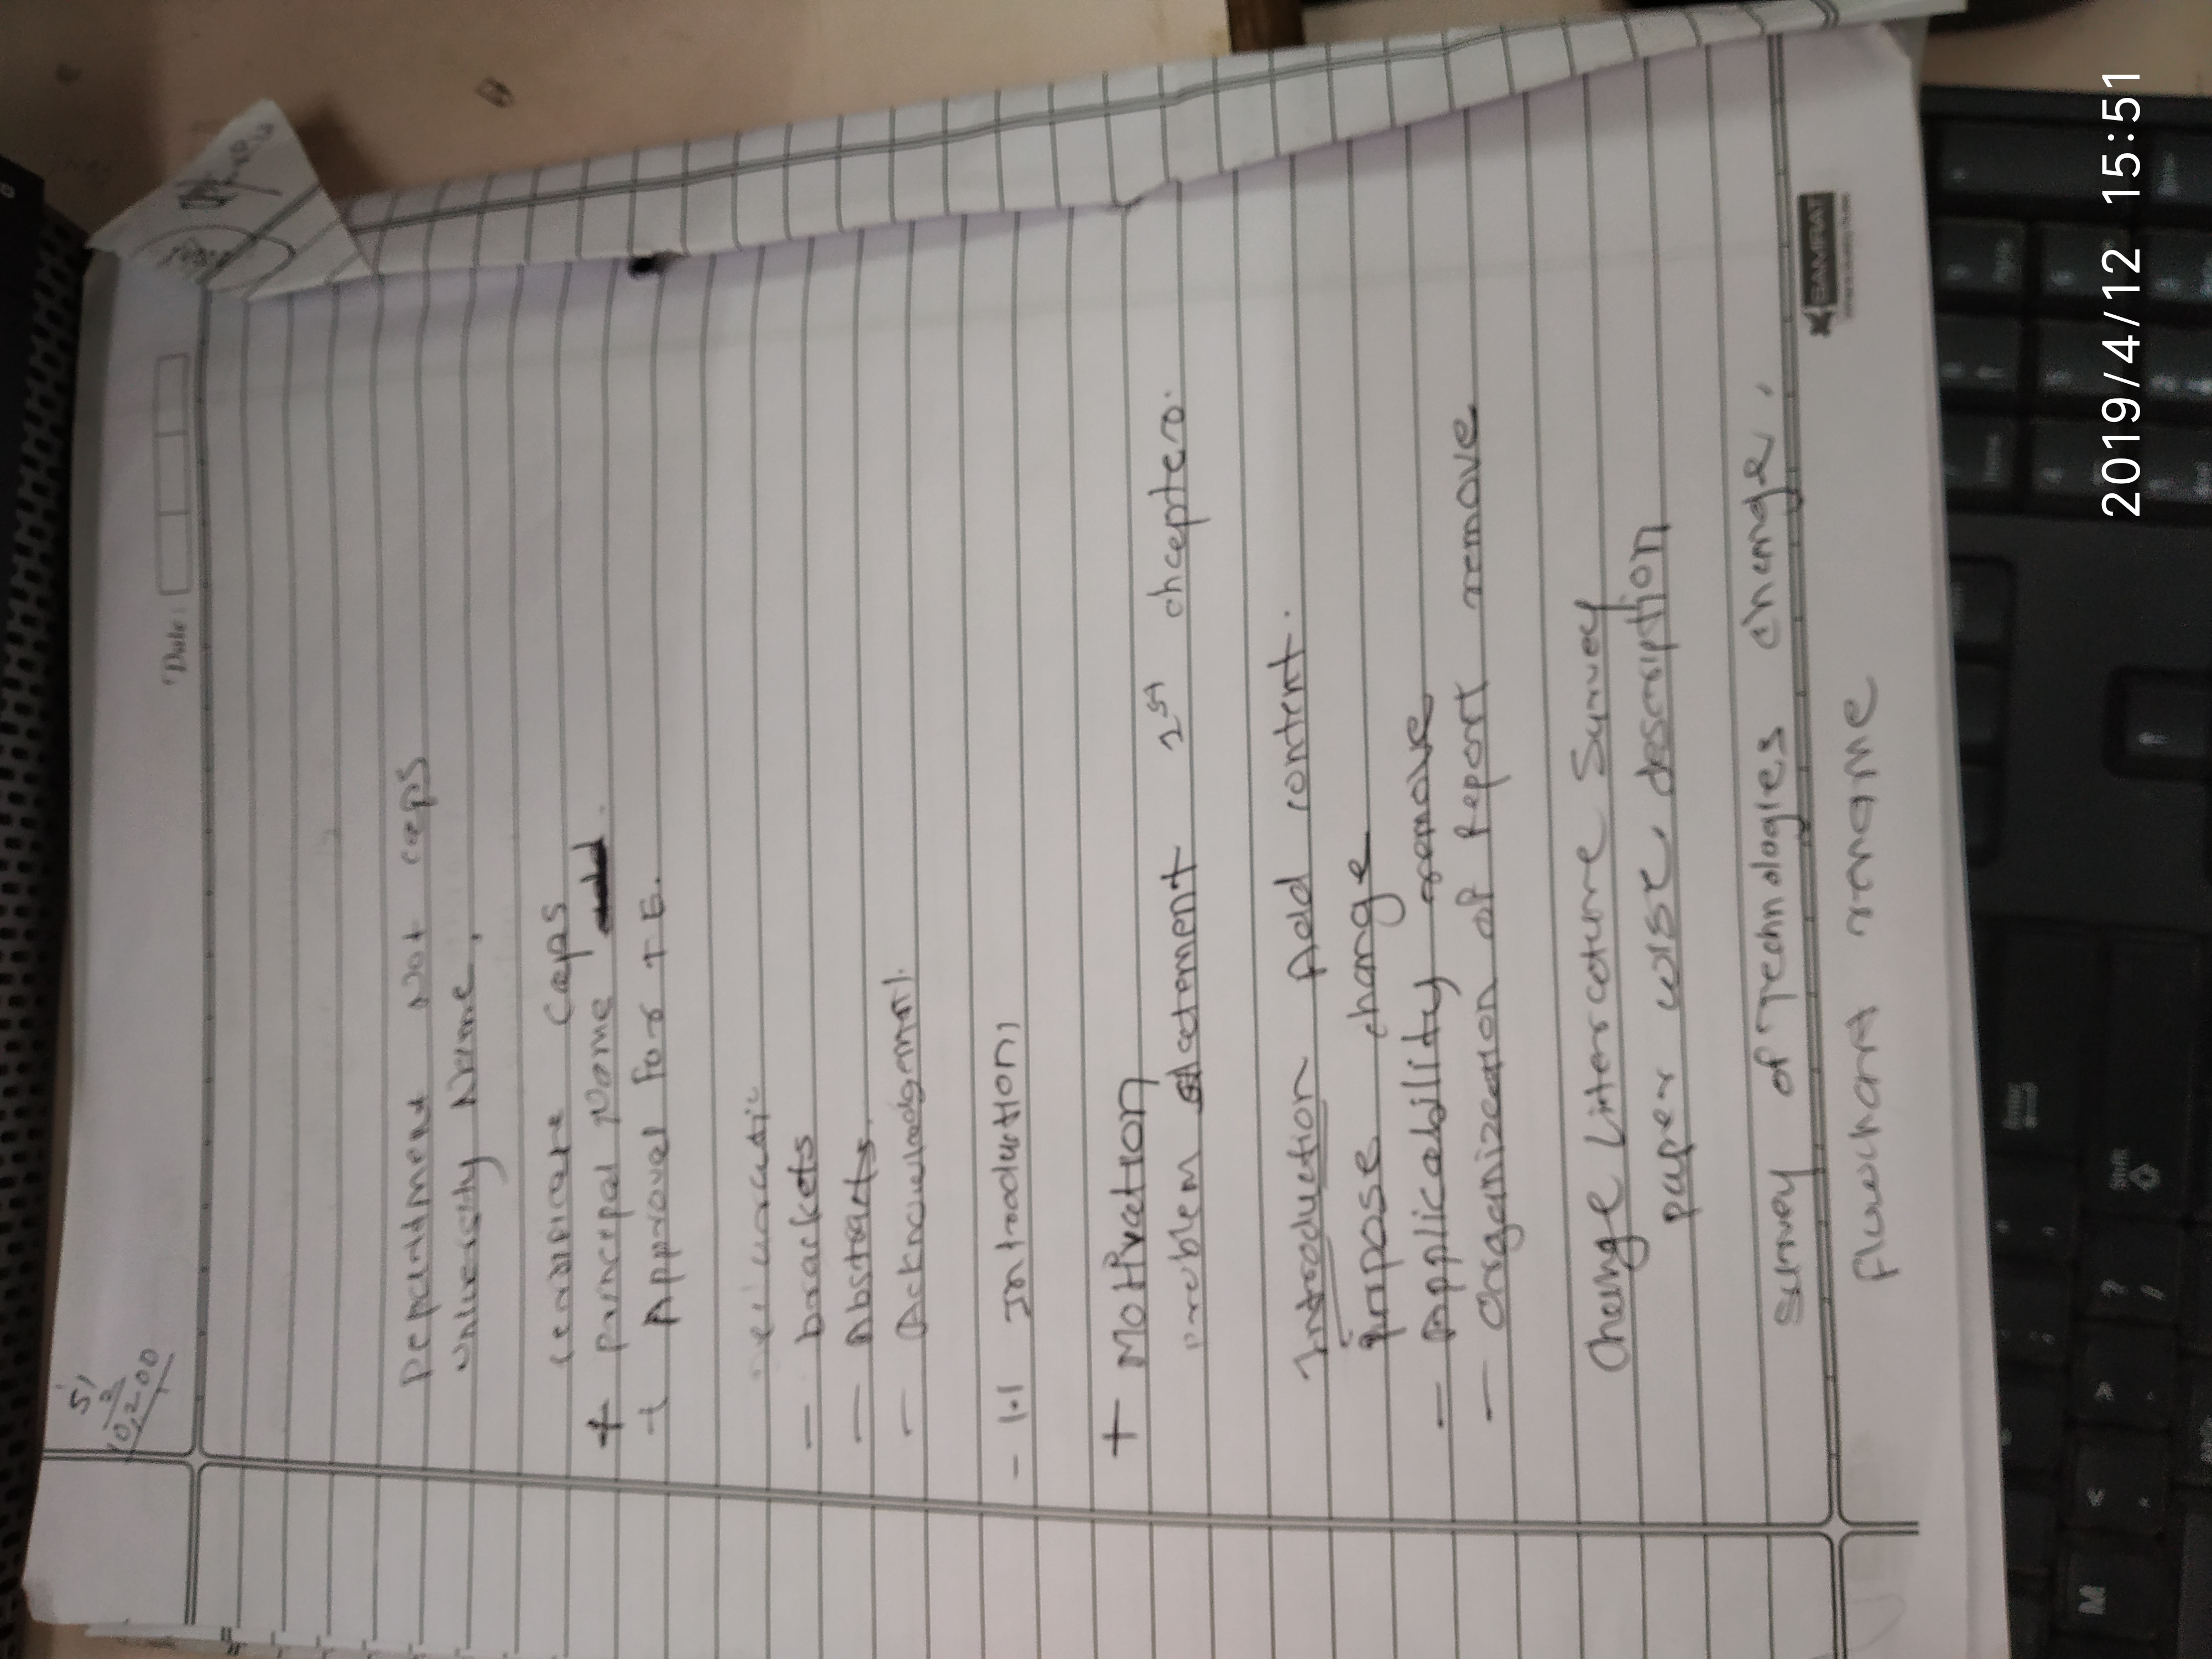 51
Date :
Department Not caps
University Name,
Certificate Caps
+ Principal Name
+ Approval For TE.
- brackets
- Abstracts
- Acknowledgement.
- 1.1 Introduction,
+ Motivation
problem statement 1st chapter.
Introduction Add content.
purpose change
- Applicability remove
- Organization of Report remove
Change Literature Survey
paper wise description
survey of Technologies change.
flowchart rename
SAMRAT
Enter
Home
M < > ?
Shift
4 5 6
1 2 3
2019/4/12 15:51